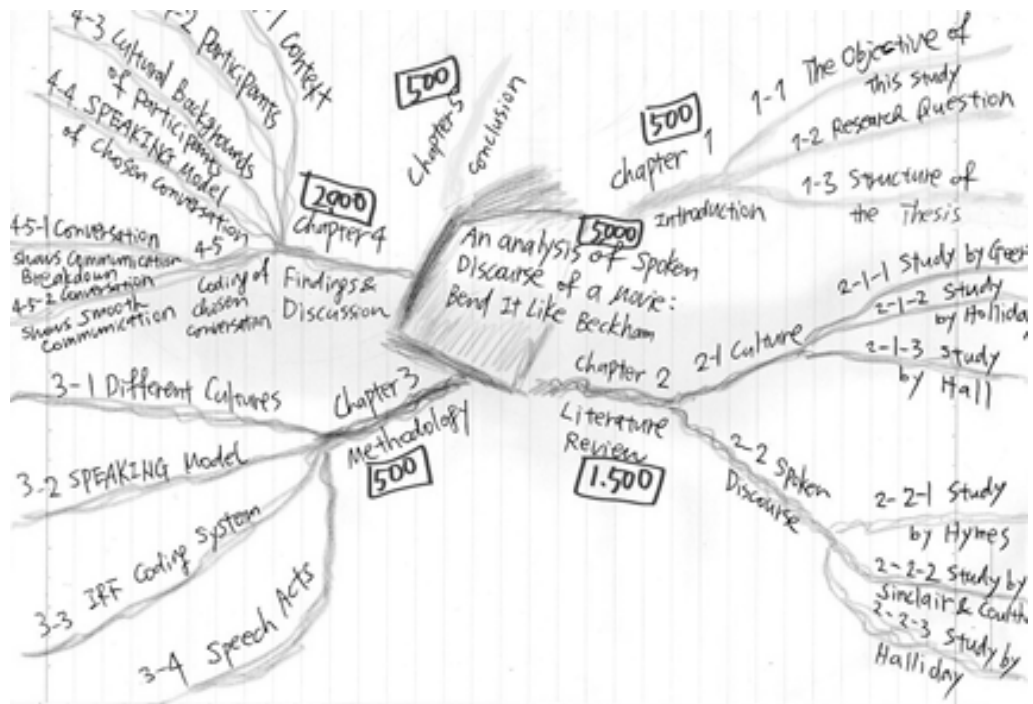 5,000
An analysis of Spoken
Discourse of a movie:
Bend It Like Beckham
500
Chapter 1
Introduction
1-1 The Objective of
This study
1-2 Research Question
1-3 Structure of
the Thesis
Chapter 2
Literature
Review
1.500
2-1 Culture
2-1-1 Study by Geer
2-1-2 Study
by Holliday
2-1-3 Study
by Hall
2-2 Spoken
Discourse
2-2-1 Study
by Hymes
2-2-2 Study by
Sinclair & Coulth
2-2-3 Study by
Halliday
Chapter 3
Methodology
500
3-1 Different Cultures
3-2 SPEAKING Model
3-3 IRF Coding System
3-4 Speech Acts
2000
Chapter 4
Findings &
Discussion
-1 Context
-2 Participants
4-3 Cultural Backgrounds
of participants
4-4. SPEAKING Model
of chosen conversation
4-5
Coding of
chosen
conversation
4-5-1 Conversation
shows Communication
Breakdown
4-5-2 Conversation
shows smooth
communication
500
Chapter 5
conclusion